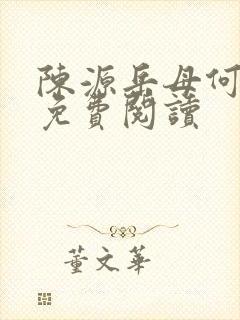 陳源岳母何
免費閱讀
董文華